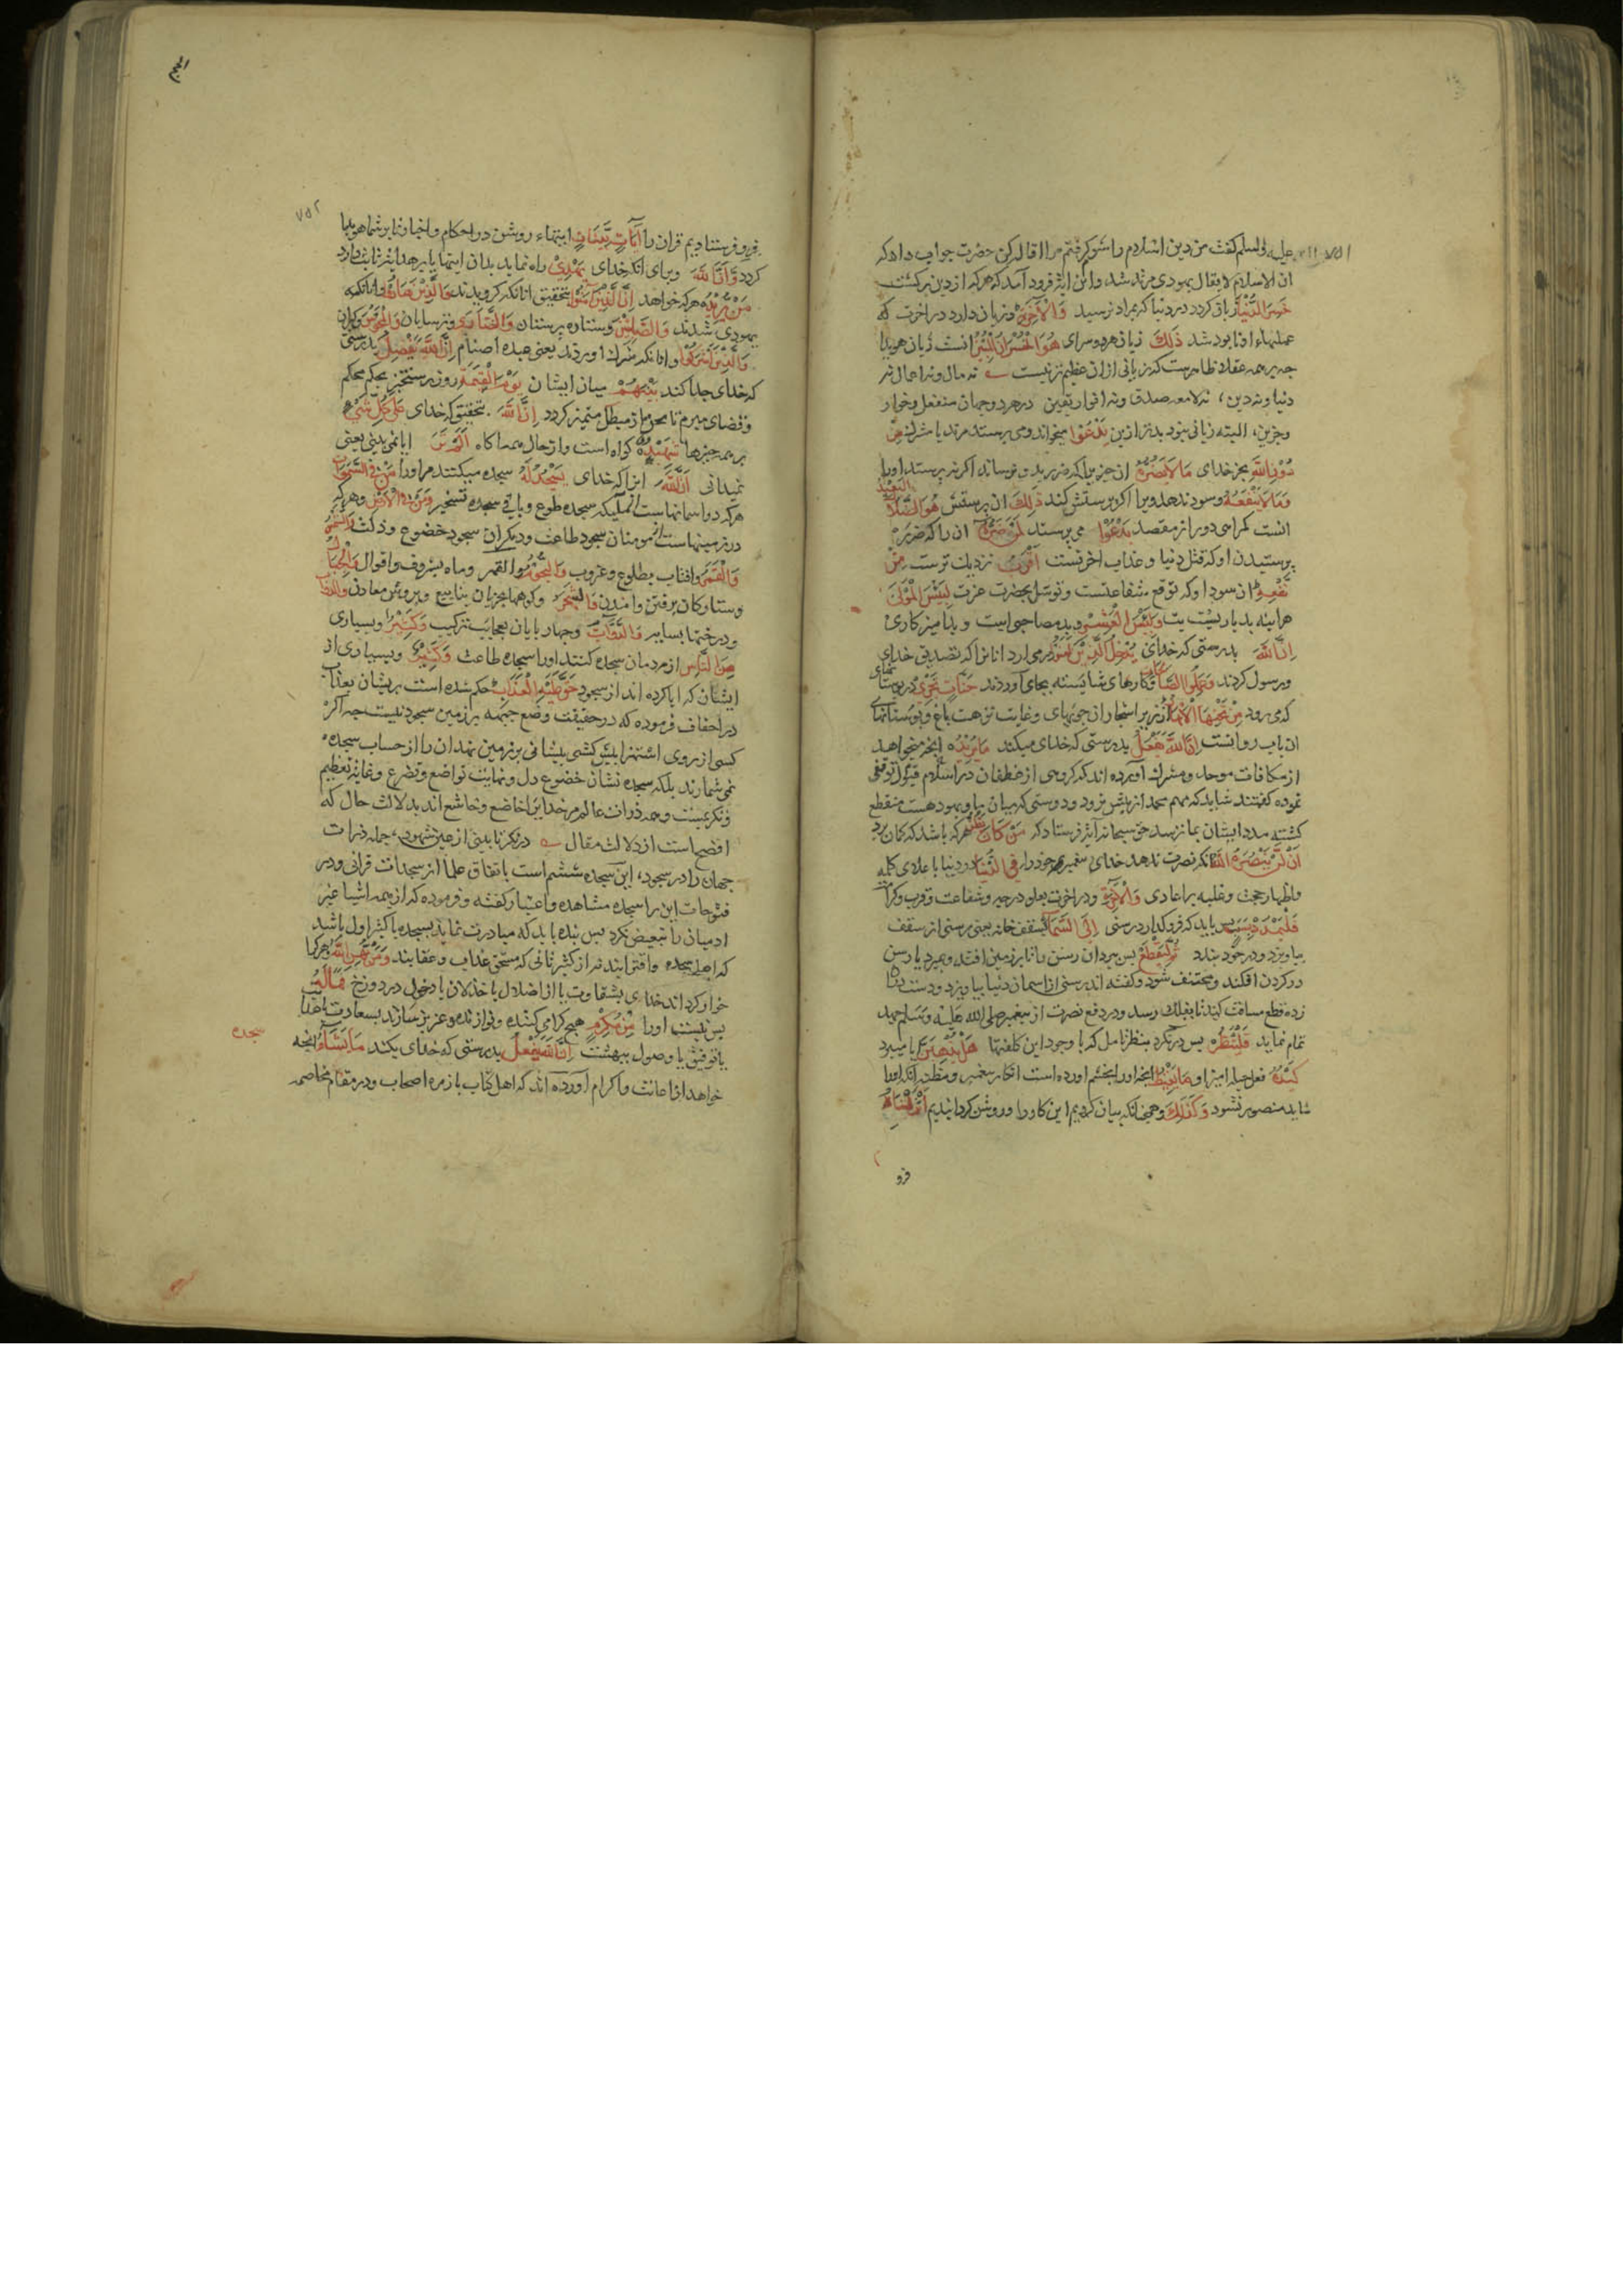 علیه والسلم کفت من دین اسلام را شوم کرفتم مرا اقاله کن حضرت جواب داد که
ان الاسلام لا یقال یهودی مرتد شد و این ایة فرود آمد که هرکه از دین برکشت
خَسِرَ الدُّنْیَا زیان کردد در دنیا که بمراد نرسید وَالْآخِرَةَ و زیان دارد در اخرت که
عملهاء او نابود شد ذَلِكَ زیان هر دو سرای هُوَ الْخُسْرَانُ الْمُبِینُ انست زیان هویدا
چه بر همه عقلا ظاهرست که زیانی ازان عظیم تر نیست نه مال و نه اعمال نه
دنیا و نه دین، نه لامعه صدق و نه انوار یقین در هر دو جهان منفعل و خوار
و حزین، البته زیانی نبود بدتر ازین یَدْعُوا میخواند و می پرستد مرتد یا مشرك مِنْ
دُونِ اللَّهِ بجز خدای مَا لَا یَضُرُّهُ ان چیزیرا که ضرر بدو نرساند اکر نپرستد اورا
وَمَا لَا یَنْفَعُهُ و سود ندهد ویرا اکر پرستش کند ذَلِكَ ان پرستش هُوَ الضَّلَالُ الْبَعِیدُ
انست کمراهی دور از مقصد یَدْعُوا می پرستد لَمَنْ ضَرُّهُ ان را که ضرر
پرستیدن او که قتل دنیا و عذاب اخرتست أَقْرَبُ نزدیك ترست مِنْ
نَفْعِهِ از سود او که توقع شفاعتست و توسل بحضرت عزت لَبِئْسَ الْمَوْلَى
هراینه بد یاریست بت وَلَبِئْسَ الْعَشِیرُ و بد مصاحبی است
إِنَّ اللَّهَ بدرستی که خدای یُدْخِلُ الَّذِینَ آمَنُوا درمی ارد انانرا که تصدیق خدای
و رسول کردند وَعَمِلُوا الصَّالِحَاتِ و کارهای شایسته بجای آوردند جَنَّاتٍ تَجْرِی در بوستانهای
که می رود مِنْ تَحْتِهَا الْأَنْهَارُ از زیر اشجار ان جویهای و غایت نزهت باغ و بوستانهای
ان باب روانست إِنَّ اللَّهَ یَفْعَلُ بدرستی که خدای میکند مَا یُرِیدُ انچه میخواهد
از مکافات موحد و مشرك آورده اند که کروهی از غطفان در اسلام قبول توقفی
نموده کفتند شاید که مهم محمد از پیش نرود و دوستی که میان ما و یهود هست منقطع
کشته مدد ایشان بما نرسد حق سبحانه آیة فرستاد که مَنْ كَانَ یَظُنُّ هرکه باشد که کمان برد
أَنْ لَنْ یَنْصُرَهُ اللَّهُ انکه نصرت ندهد خدای پیغمبر خود را فِی الدُّنْیَا در دنیا باعلای کلمه
و اظهار حجت و غلبه بر اعادی وَالْآخِرَةِ و در اخرت بعلو درجه و شفاعت و قرب و کرامت
فَلْیَمْدُدْ بِسَبَبٍ پس باید که فرو کذارد رسنی إِلَى السَّمَاءِ بسقف خانه یعنی رسنی از سقف
بیاویزد و در خود بندد ثُمَّ لْیَقْطَعْ پس ببرد ان رسن را تا بر زمین افتد و بمیرد یا رسن
در کردن افکند و مختنق شود و کفته اند رسنی از اسمان دنیا بیاویزد و دست درو
زده قطع مسافت کند تا بفلك رسد و در دفع نصرت از پیغمبر صلی الله علیه وسلم جهد
تمام نماید فَلْیَنْظُرْ پس درنکرد بنظر تامل که با وجود این کلفتها هَلْ یُذْهِبَنَّ ایا میبرد
كَیْدُهُ فعل حیله امیز او مَا یَغِیظُ انچه اورا بخشم اورده است
شاید منصور نشود وَكَذَلِكَ و همچنانکه بیان کردیم این کار را و روشن کردانیدیم أَنْزَلْنَاهُ
فرو
٧٥٢
فرو فرستادیم قران را آیَاتٍ بَیِّنَاتٍ ایتهاء روشن در احکام و اخبار تا بر شما هویدا
کردد وَأَنَّ اللَّهَ و برای انکه خدای یَهْدِی راه نماید بدان ایتها یا بر هدایت ثابت دارد
مَنْ یُرِیدُ هرکه خواهد إِنَّ الَّذِینَ آمَنُوا بتحقیق انانکه کرویدند وَالَّذِینَ هَادُوا و انانکه
یهودی شدند وَالصَّابِئِینَ و ستاره پرستان وَالنَّصَارَى و ترسایان وَالْمَجُوسَ و کبران
وَالَّذِینَ أَشْرَكُوا و انانکه شرك اوردند یعنی عبده اصنام إِنَّ اللَّهَ یَفْصِلُ بدرستی
که خدای جدا کند بَیْنَهُمْ میان ایشان یَوْمَ الْقِیمَةِ روز رستخیز بحکم محکم
و قضای مبرم تا محق از مبطل متمیز کردد إِنَّ اللَّهَ بتحقیق که خدای عَلَى كُلِّ شَیْءٍ
بر همه چیزها شَهِیدٌ کواه است و از حال همه اکاه أَلَمْ تَرَ ایا نمی بینی یعنی
نمیدانی أَنَّ اللَّهَ انرا که خدای یَسْجُدُ لَهُ سجده میکنند مراورا مَنْ فِی السَّمَوَاتِ
هرکه در اسمانهاست از ملیکه سجده طوع و باقی سجده تسخیر وَمَنْ فِی الْأَرْضِ و هرکه
در زمینهاست از مومنان سجود طاعت و دیکران سجود خضوع و ذلت وَالشَّمْسُ
وَالْقَمَرُ و افتاب بطلوع و غروب وَالنُّجُومُ و ماه وَالْجِبَالُ
و ستارکان برفتن و امدن وَالشَّجَرُ و کوهها بجریان ینابیع و پرورش معادن
و درختها بسایه وَالدَّوَابُّ و چهارپایان بعجایب ترکیب وَكَثِیرٌ و بسیاری
مِنَ النَّاسِ از مردمان سجده کنند اورا سجده طاعت وَكَثِیرٌ و بسیاری از
ایشان که ابا کرده اند از سجود حَقَّ عَلَیْهِ الْعَذَابُ حکم شده است بریشان بعذاب
در احقاف فرموده که در حقیقت وضع جبهه بر زمین سجود نیست چه اکر
کسی از روی استهزا پیش کشی پیشانی بر زمین نهد ان را از حساب سجده
نمی شمارند بلکه سجده نشان خضوع دل و نهایت تواضع و تضرع و غایة تعظیم
و همه ذرات عالم مر خدایرا خاضع و خاشع اند بدلالت حال که
افصح است از دلالت مقال درنکر تا بینی از عین شهود، جمله ذرات
جهان را در سجود، این سجده ششم است باتفاق علما از سجدات قرانی و در
فتوحات این را سجده مشاهده و اعتبار کفته و فرموده که از همه اشیا غیر
ادمیان را تبعیض نکرد پس بنده باید که مبادرت نماید بسجده تا از کثیر اول باشد
که اهل سجده و اقترابند نه از کثیر ثانی که مستحق عذاب و عقابند وَمَنْ یُهِنِ اللَّهُ و هرکرا
خوار کرداند خدای بشقاوت یا از اضلال یا خذلان یا دخول در دوزخ فَمَا لَهُ
پس نیست اورا مِنْ مُكْرِمٍ هیچ کرامی کننده و نوازنده و عزیز سازنده بسعادت یا هدا
یا توفیق یا وصول ببهشت إِنَّ اللَّهَ یَفْعَلُ بدرستی که خدای بکند مَا یَشَاءُ انچه
سجده
خواهد از اهانت و اکرام آورده اند که اهل کتاب با زمره اصحاب در مقام مخاصمه